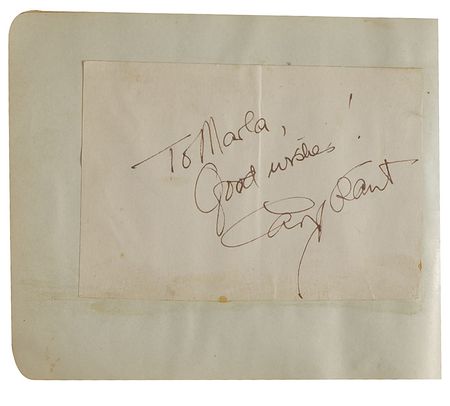 To Marla,
Good wishes!
Cary Grant